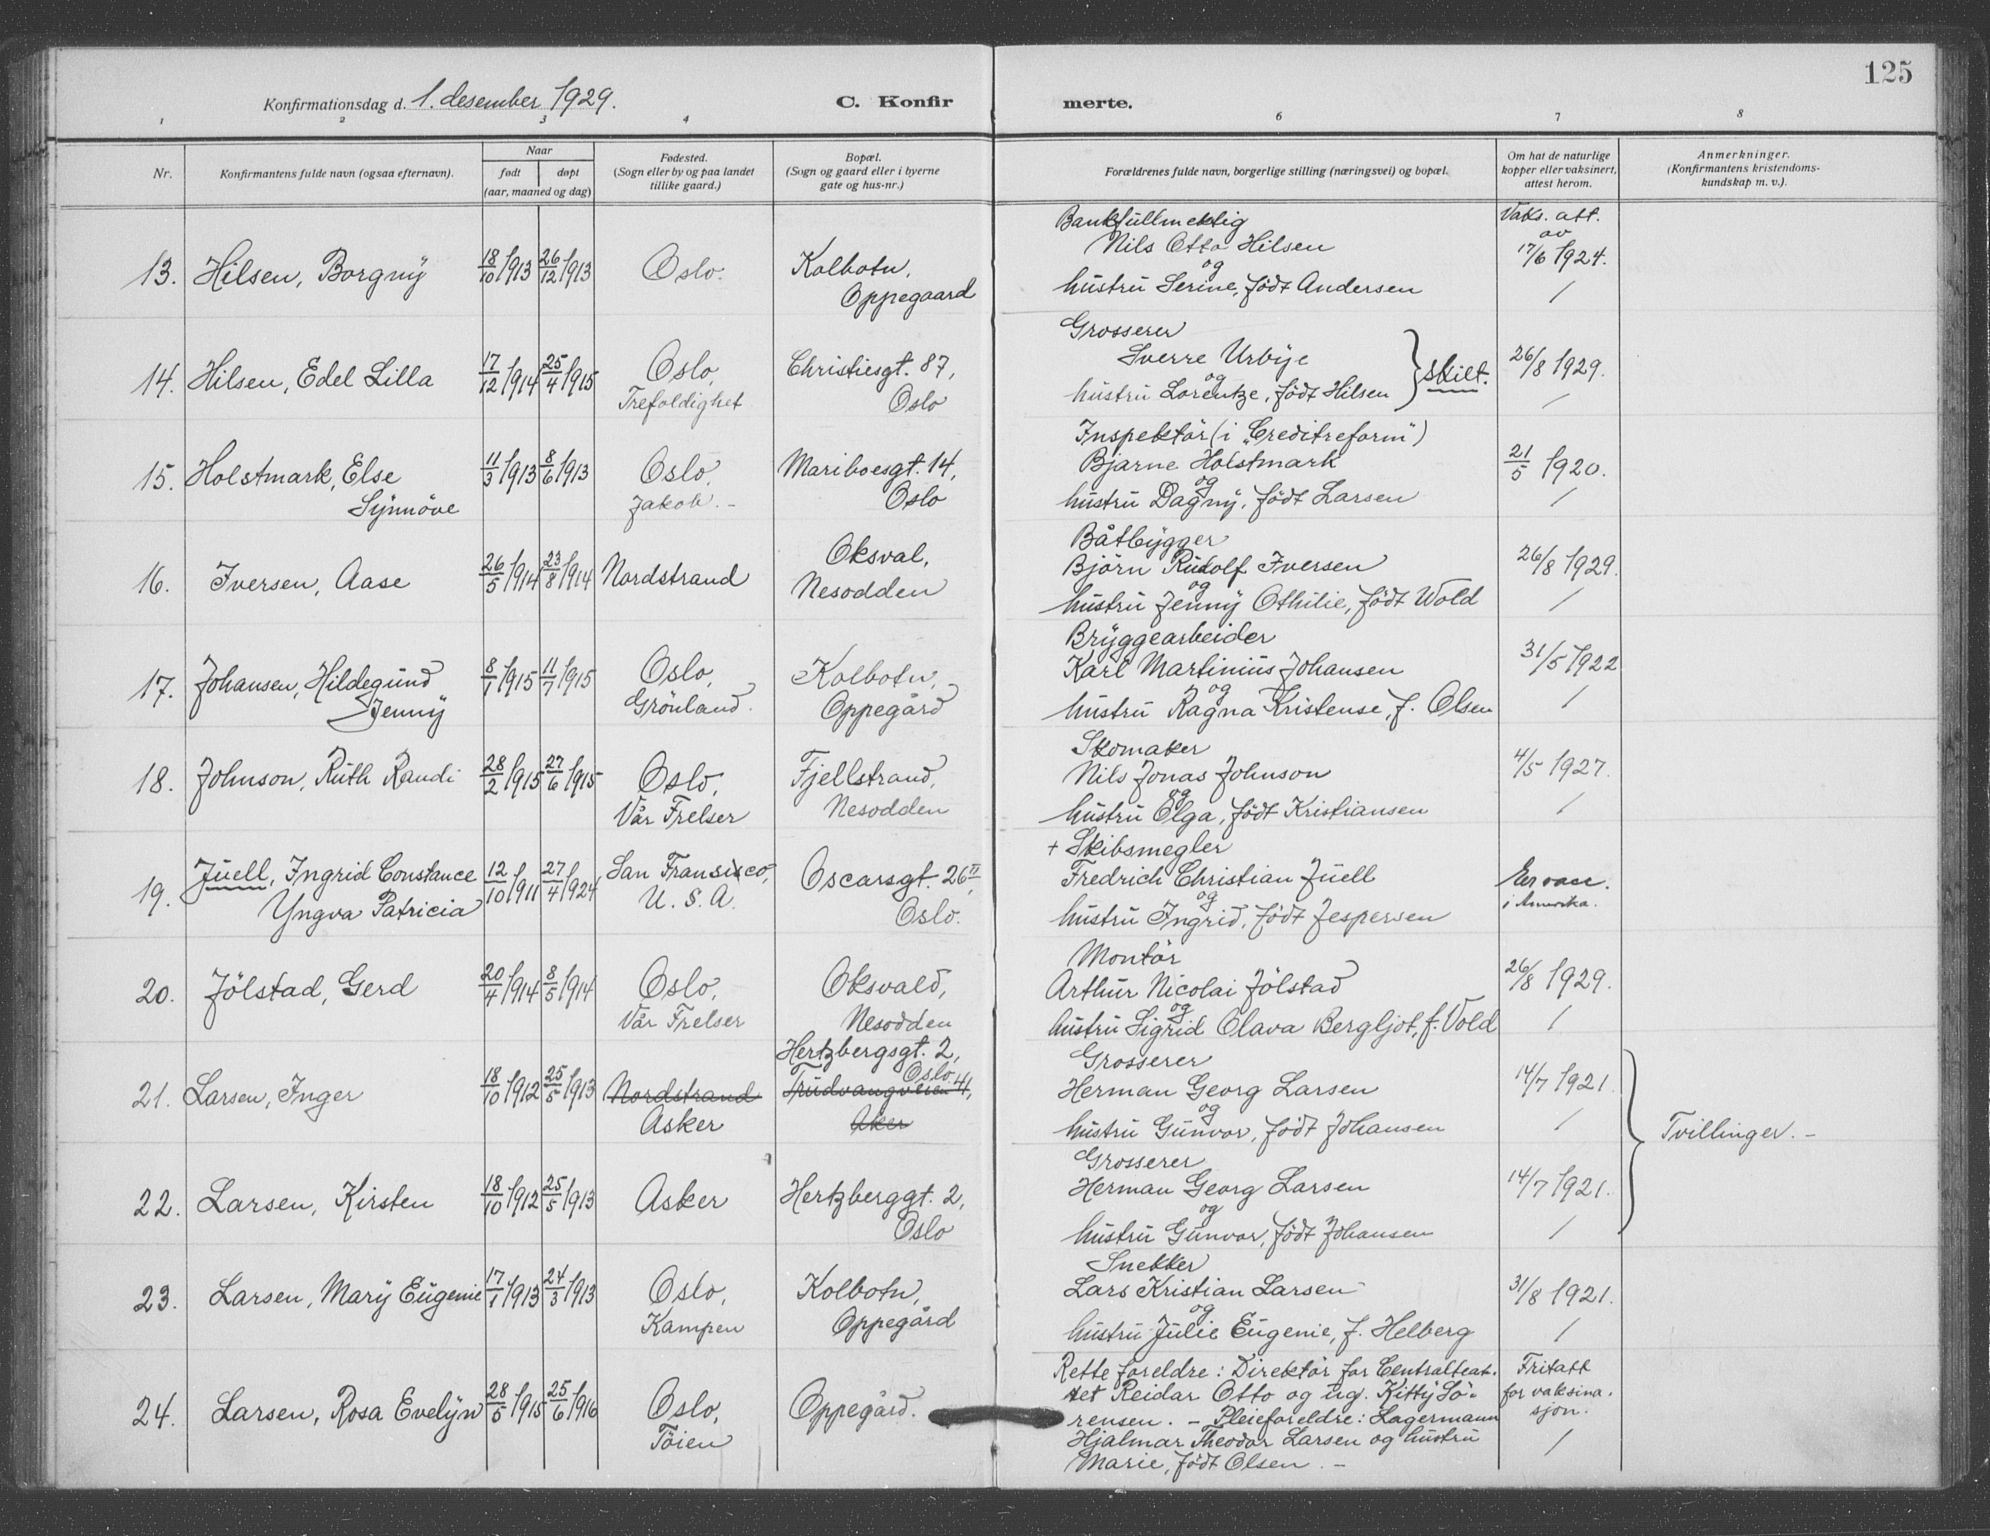 125
Konfirmationsdag d. 1. desember 1929.
C. Konfirmerte.
1 2 3 4 6 7 8
Nr.
Konfirmantens fulde navn (ogsaa efternavn).
Naar
født døpt
(aar, maaned og dag)
Fødested.
(Sogn eller by og paa landet
tillike gaard.)
Bopæl.
(Sogn og gaard eller i byerne
gate og hus-nr.)
Forældrenes fulde navn, borgerlige stilling (næringsvei) og bopæl.
Om hat de naturlige
kopper eller vaksinert,
attest herom.
Anmerkninger.
(Konfirmantens kristendoms-
kundskap m. v.).
13. Hilsen, Borgny 18/10 1913 26/12 1913 Oslo. Kolbotn,
Oppegaard
Bankfullmektig
Nils Otto Hilsen
og
hustru Serine, født Andersen
Vaks. att.
av
17/6 1924.
/
14. Hilsen, Edel Lilla 17/12 1914 25/4 1915 Oslo,
Trefoldighet
Christiesgt. 87,
Oslo
Grosserer
Sverre Urbye
og
hustru Lorentze, født Hilsen
skilt.
26/8 1929.
/
15. Holstmark, Else
Synnöve
11/3 1913 8/6 1913 Oslo,
Jakob. -
Mariboesgt. 14,
Oslo
Inspektör (i "Creditreform")
Bjarne Holstmark
og
hustru Dagny, født Larsen
21/5 1920.
/
16. Iversen, Aase 26/5 1914 23/8 1914 Nordstrand Oksval,
Nesodden
Båtbygger
Björn Rudolf Iversen
og
hustru Jenny Othilie, født Wold
26/8 1929.
/
17. Johansen, Hildegund
Jenny
8/1 1915 11/7 1915 Oslo,
Grönland.
Kolbotn,
Oppegård
Bryggearbeider
Karl Martinius Johansen
og
hustru Ragna Kristense, f. Olsen
31/5 1922
/
18. Johnson, Ruth Randi 28/2 1915 27/6 1915 Oslo,
Vår Frelser
Fjellstrand,
Nesodden
Skomaker
Nils Jonas Johnson
og
hustru Olga, født Kristiansen
4/5 1927.
/
19. Juell, Ingrid Constance
Yngva Patricia
12/10 1911 27/4 1924 San Fransisco,
U. S. A.
Oscarsgt. 26 II,
Oslo.
+ Skibsmegler
Fredrich Christian Juell
og
hustru Ingrid, født Jespersen
Er vac.
i Amerika.
20. Jölstad, Gerd 20/4 1914 8/5 1914 Oslo,
Vår Frelser
Oksvald,
Nesodden
Montör
Arthur Nicolai Jölstad
og
hustru Sigrid Olava Bergljot, f. Vold
26/8 1929.
/
21. Larsen, Inger 18/10 1912 25/5 1913 Nordstrand
Asker
Hertzbergsgt. 2,
Oslo.
Trudvangveien 41,
Aker
Grosserer
Herman Georg Larsen
og
hustru Gunvor, født Johansen
14/7 1921.
/
Tvillinger. -
22. Larsen, Kirsten 18/10 1912 25/5 1913 Asker Hertzberggt. 2,
Oslo
Grosserer
Herman Georg Larsen
og
hustru Gunvor, født Johansen
14/7 1921.
/
23. Larsen, Mary Eugenie 17/1 1913 24/3 1913 Oslo,
Kampen
Kolbotn,
Oppegård
Snekker
Lars Kristian Larsen
og
hustru Julie Eugenie, f. Helberg
31/8 1921.
/
24. Larsen, Rosa Evelyn 28/5 1915 25/6 1916 Oslo,
Töien
Oppegård.
Rette foreldre: Direktör for Centralteat-
ret Reidar Otto og ug. Kitty Sö-
rensen. - Pleieforeldre: Lagermann
Hjalmar Theodor Larsen og hustru
Marie, født Olsen. -
Fritatt
for vaksina-
sjon.
/